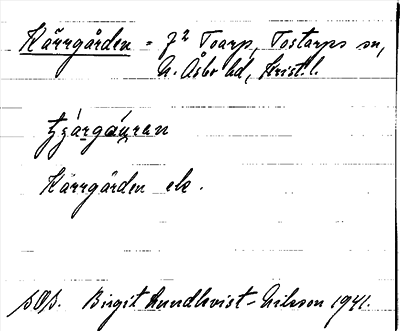 Kärrgården = f² Toarp, Tostarps sn,
N. Åsbo hd, Krist. l.
Kärrgården ek.
sOp. Birgit Lundkvist-Nilsson 1941.